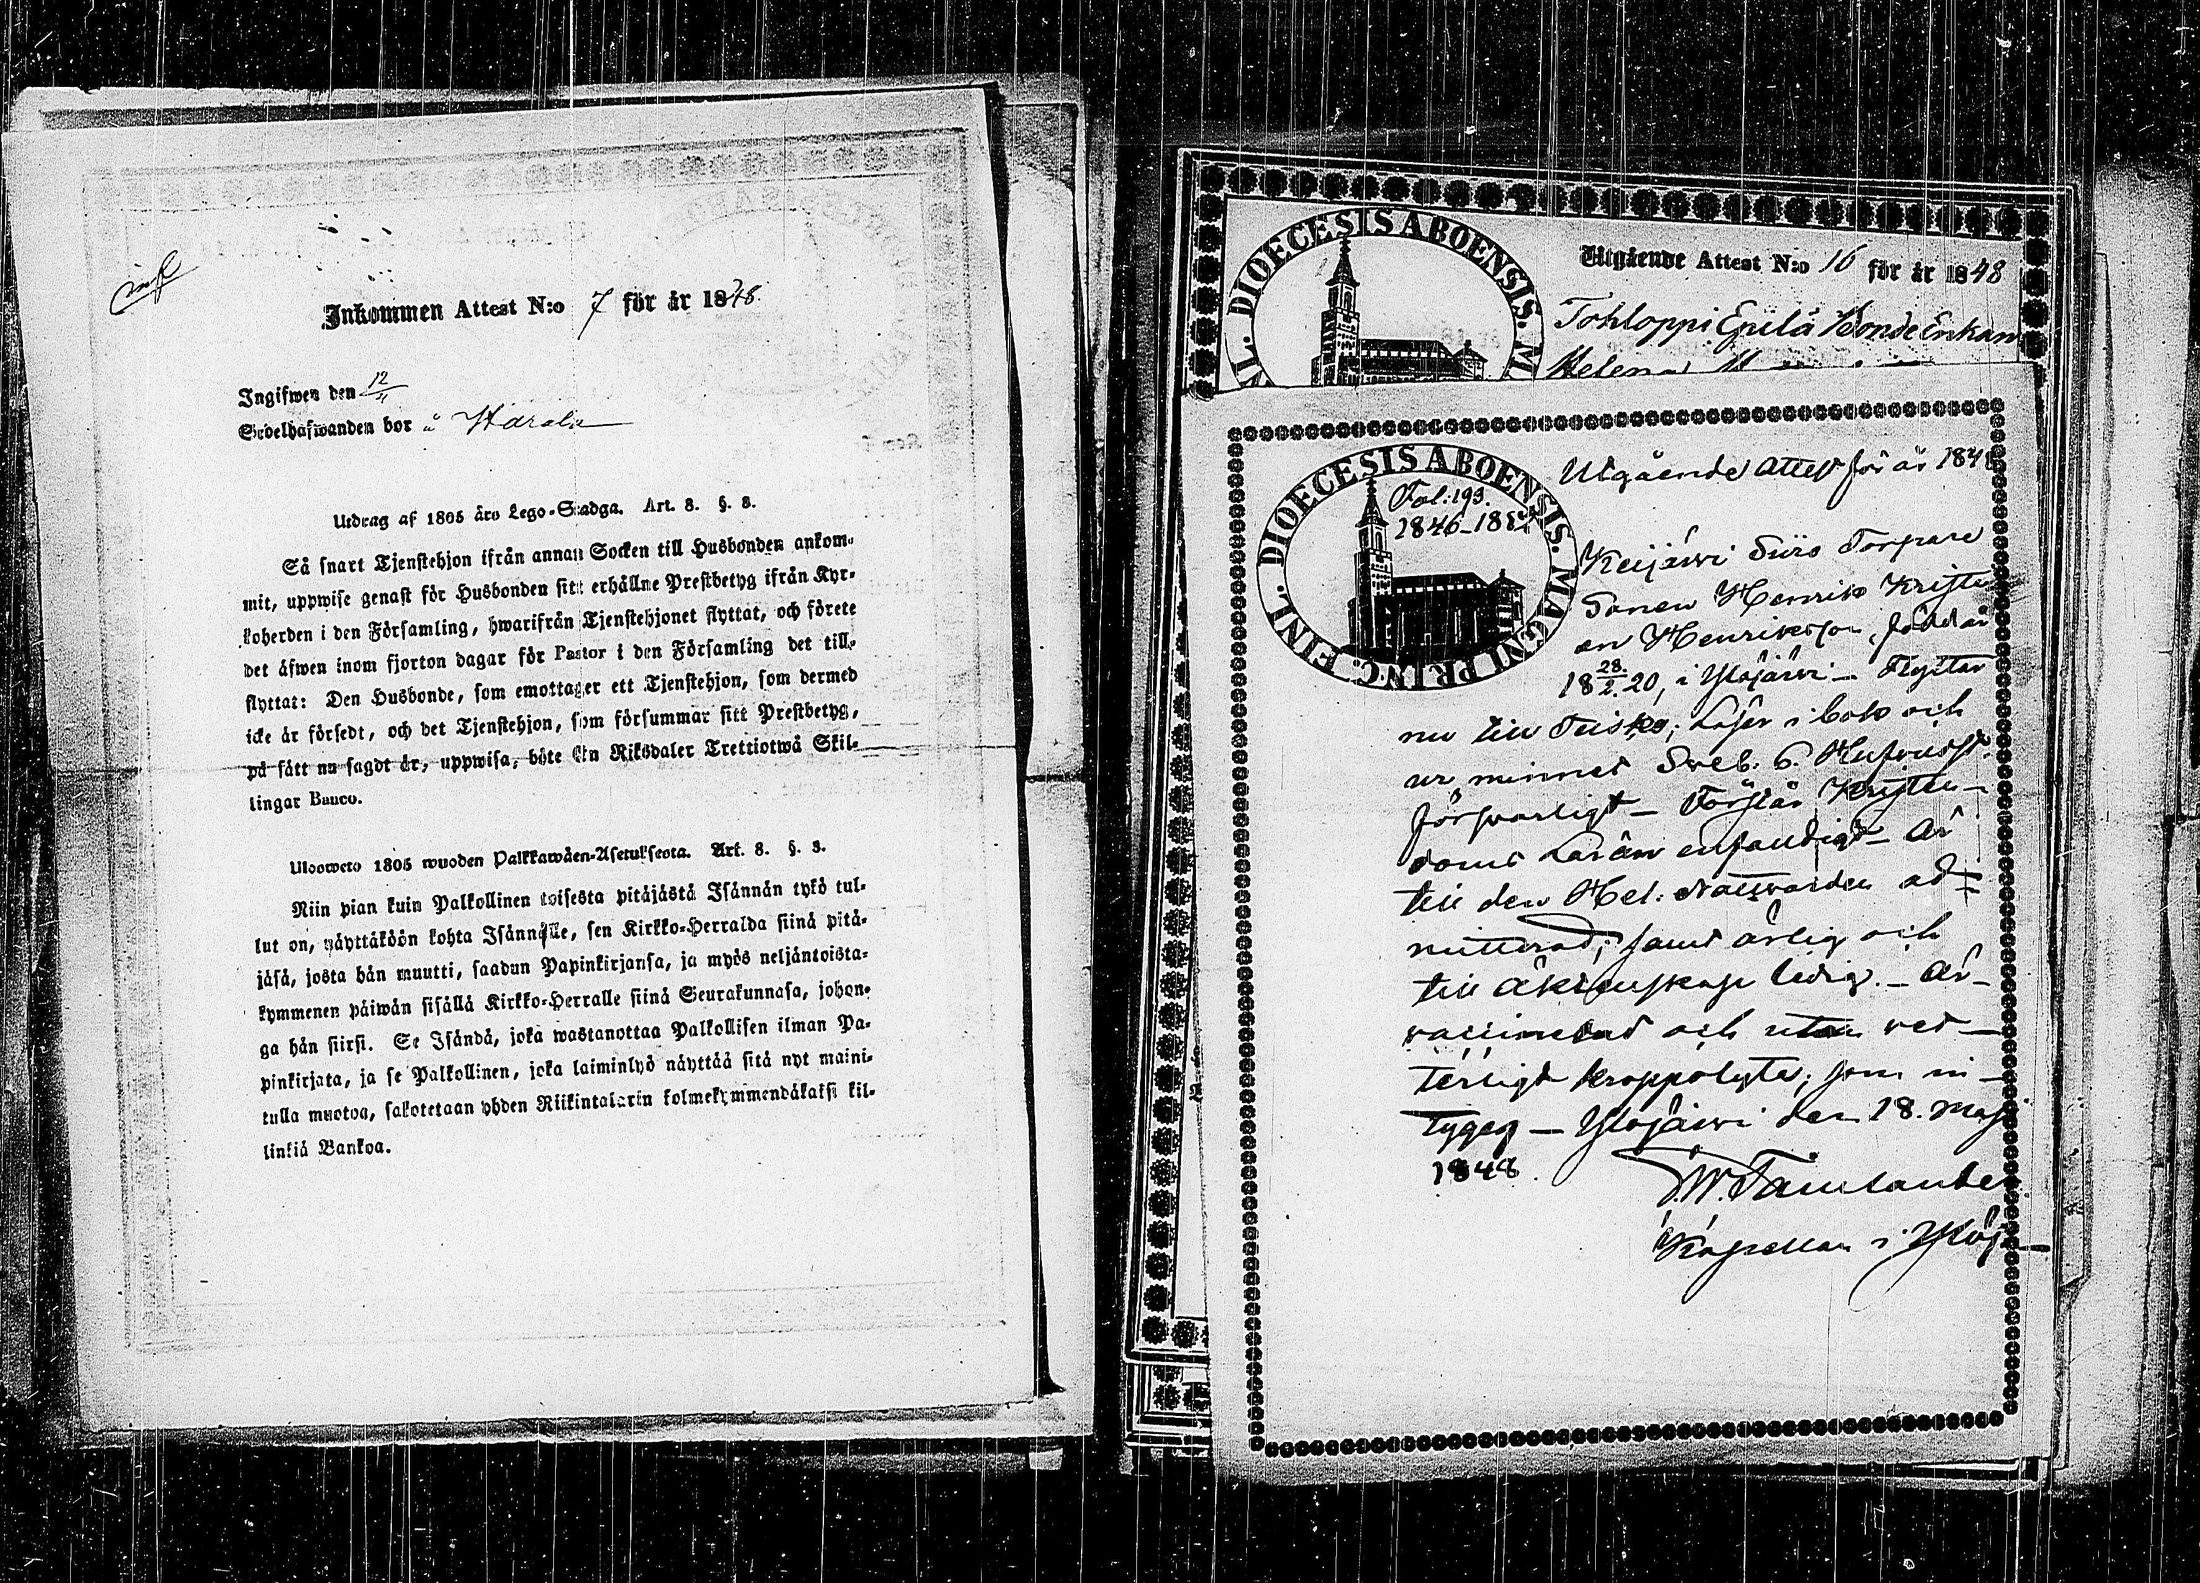 inf
Inkommen Attest N:o 7 för år 1848.
Ingifwen den 12/11
Sedelhafwanden bor å Harala
Utdrag af 1805 års Lego-Stadga. Art. 8. §. 3.
Så snart Tjenstehjon ifrån annan Socken till Husbonden ankom-
mit, uppwise genast för Husbonden sitt erhållne Prestbetyg ifrån Kyr-
koherden i den Församling, hwarifrån Tjenstehjonet flyttat, och förete
det äfwen inom fjorton dagar för Pastor i den Församling det till-
flyttat: Den Husbonde, som emottager ett Tjenstehjon, som dermed
icke är försedt, och det Tjenstehjon, som försummar sitt Prestbetyg,
på sätt nu sagdt är, uppwisa, böte En Riksdaler Trettiotwå Skil-
lingar Banco.
Ulosweto 1805 wuoden Palkkawäen-Asetuksesta. Art. 8. §. 3.
Niin pian kuin Palkollinen toisesta pitäjästä Isännän tykö tul-
lut on, näyttäköön kohta Isännälle, sen Kirkko-Herralda siinä pitä-
jäsä, josta hän muutti, saadun Papinkirjansa, ja myös neljäntoista-
kymmenen päiwän sisällä Kirkko-Herralle siinä Seurakunnasa, johon-
ga hän siirsi. Se Isändä, joka wastanottaa Palkollisen ilman Pa-
pinkirjata, ja se Palkollinen, joka laiminlyö näyttää sitä nyt maini-
tulla muotoa, sakotetaan yhden Riikintalarin kolmekymmendäkaksi kil-
linkiä Bankoa.
DIOECESIS ABOENSIS. M
NL.
Utgående Attest N:o 16 för år 1848
Tohloppi Epilä Bonde Enkan
Helena
DIOECESIS ABOENSIS. MAGNI PRINC. FINL.
Fol: 193.
1846-185
Utgående Attest för år 184
Keijärvi Siiro Torpare
Sonen Henrik Kristi
an Henriksson, född år
18 28/2. 20, i Ylöjärvi — Flyttar
nu till Teisko; Läser i bok och
ur minnet Sveb. o. Hufvudst.
försvarligt — Förstår Kristen-
doms Läran enfaldigt — Är
till den Hel: Nattvarden ad-
mitterad; samt ärlig och
till äktenskap ledig. — Är
vaccinerad och utan vet-
terligt kroppslyte; som in-
tygeg — Ylöjärvi den 18. Maji
1848.
Kapellan i Ylöj